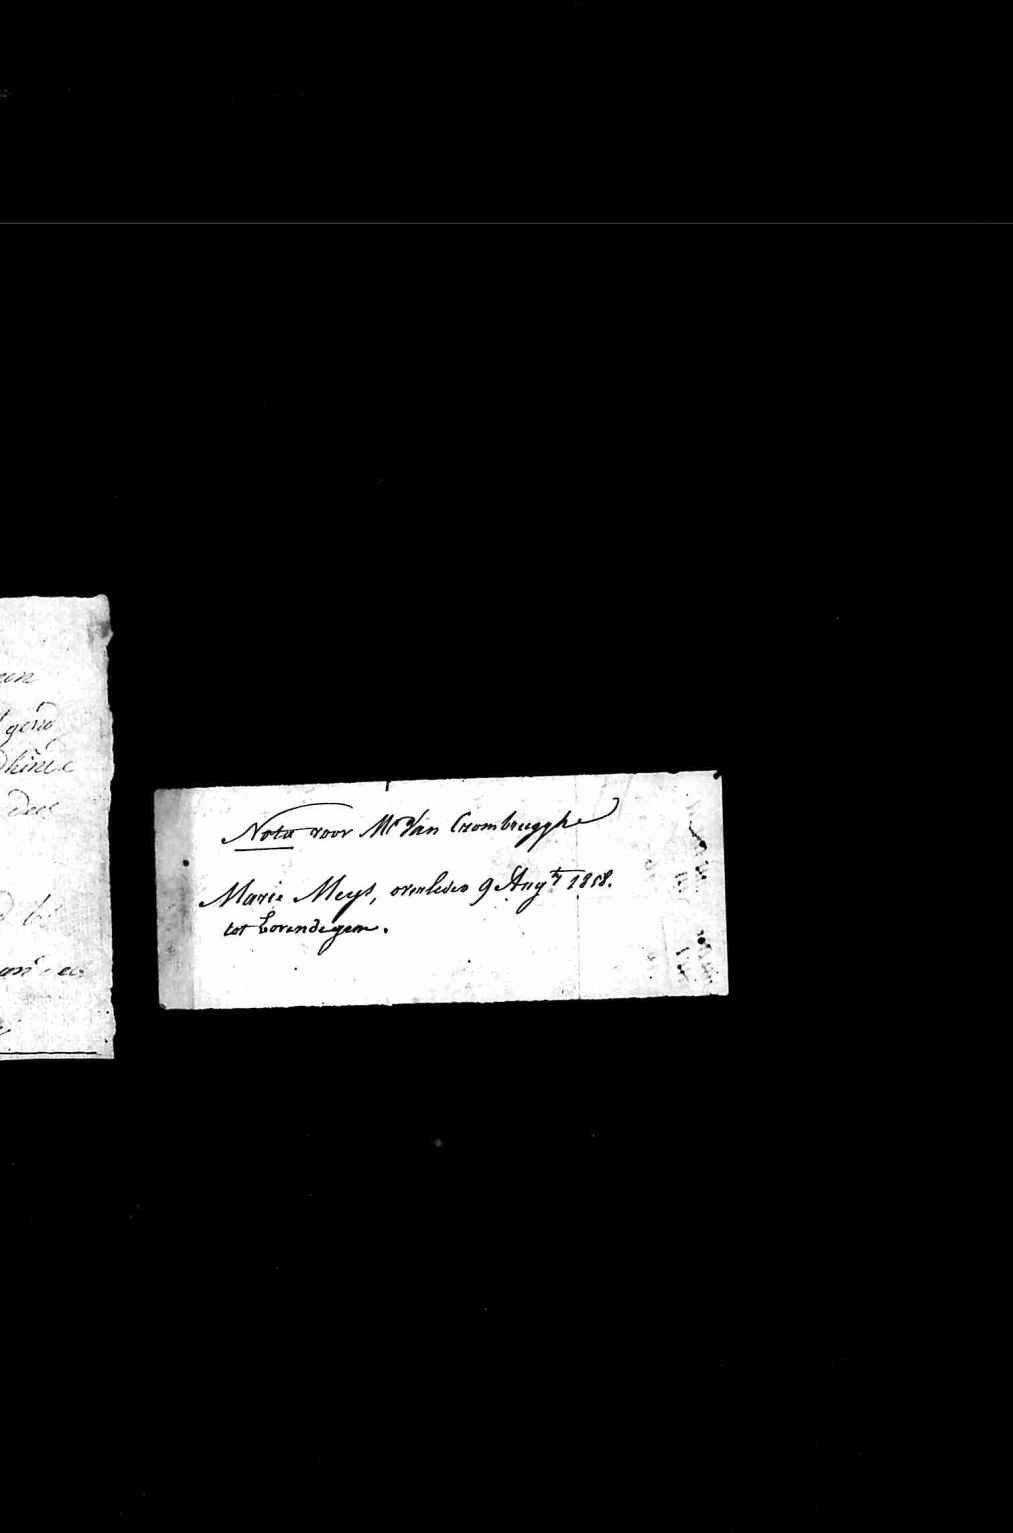 Nota voor Mr Van Crombrugghe
Marie Meys, overleden 9 Augt 1818.
tot Lovendegem.